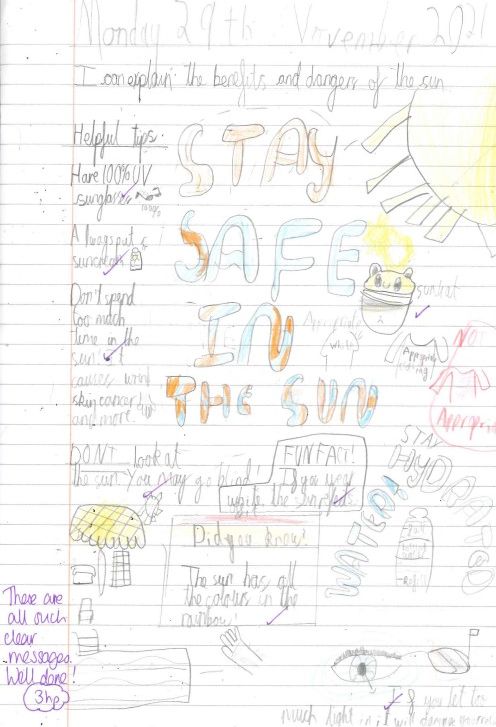 Monday 29th November 2021
I can explain the benefits and dangers of the sun
STAY
SAFE
IN
THE SUN
Helpful tips.
Have 100% UV
sunglasses
100%
Always put
suncream
Don't spend
too much
time in the
sun it
causes
skin cancer
and more.
sunhat
Appropriate
White
Appropriate
NOT
Appropri
DONT look at
the sun. You may go blind!
FUN FACT!
If you wear
white the sun
Did you know!
The sun has all
the colours in the
rainbow!
STAY
HYDRAT
WATER!
Refill
There are
all such
clear
messages.
Well done!
3hp
If you let too
much light in it will damage your